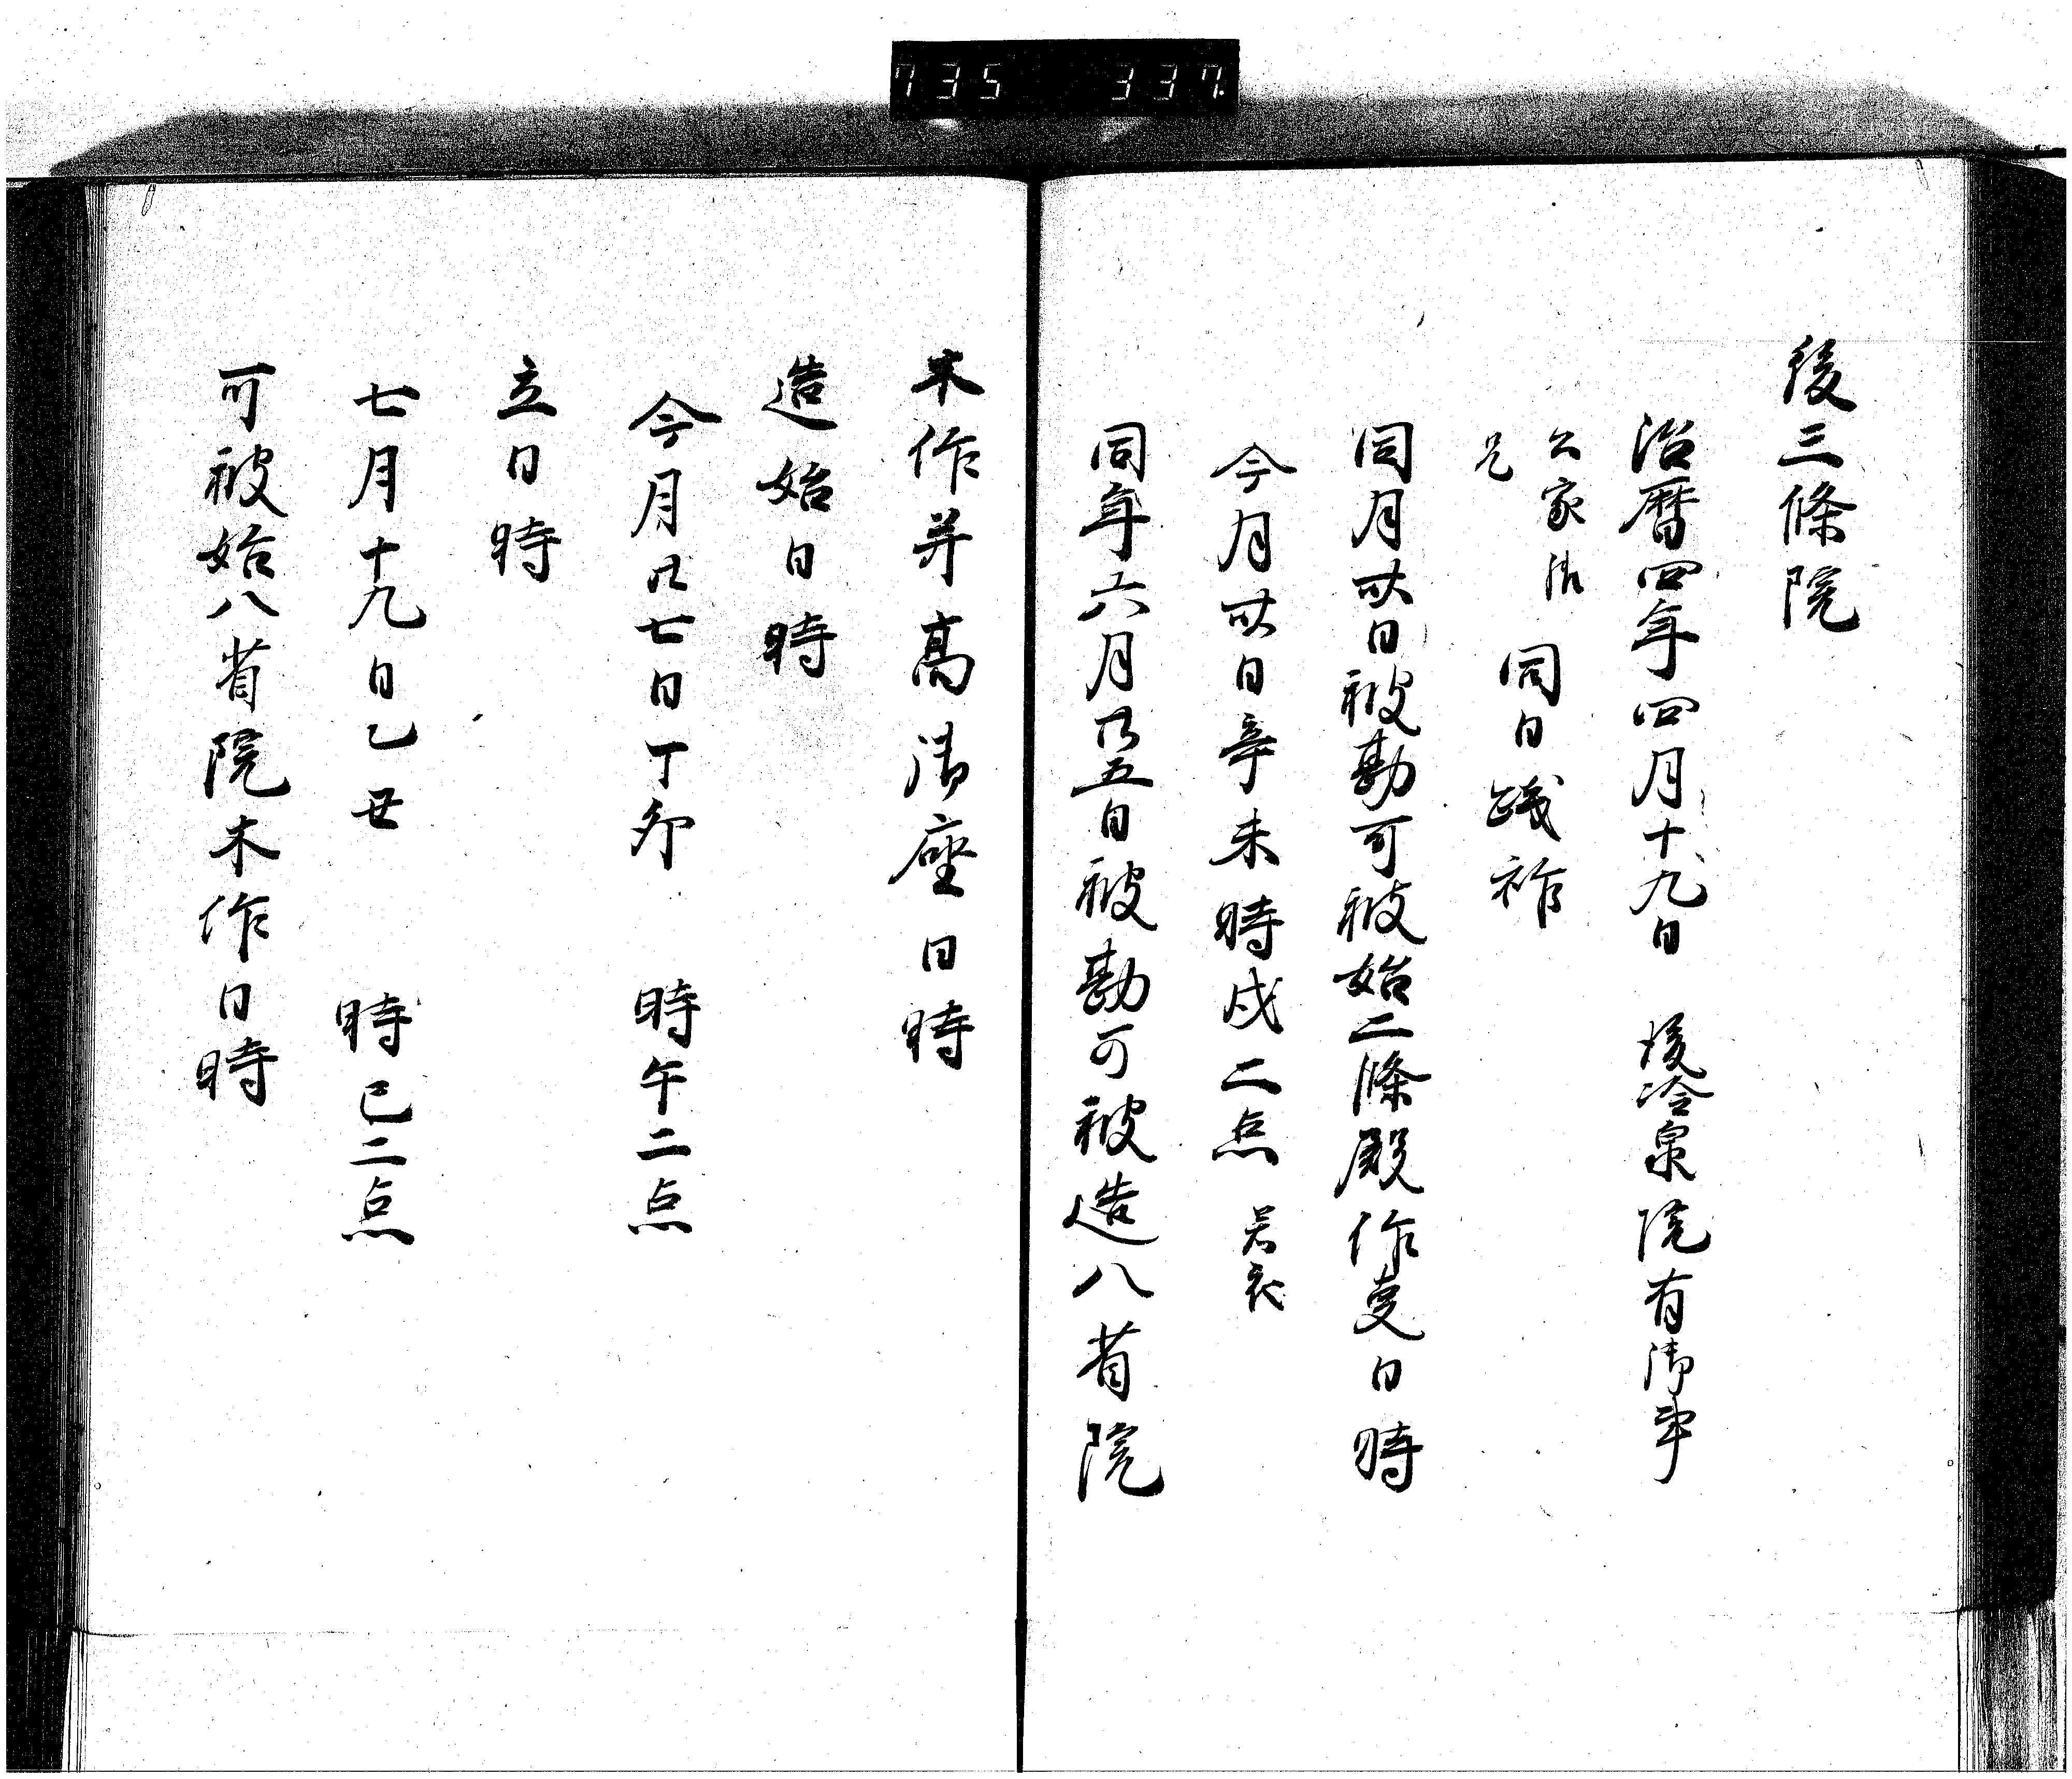 735 337
後三條院
治暦四年四月十九日 後冷泉院有御事
公家御
兄
同日踐祚
同月卅日被勘可被始二條殿作叓日時
今月卅日辛未時戌二点
同年六月廿五日被勘可被造八省院
木作并高御座日時
造始日時
今月廿七日丁卯 時午二点
立日時
七月十九日乙丑 時巳二点
可被始八省院木作日時